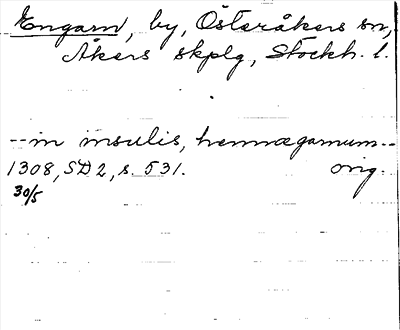 Engarn, by, Österåkers sn,
Åkers skplg, Stockh. l.
--in insulis, hemnægarnum--
1308, SD 2, s. 531. orig.
30/5